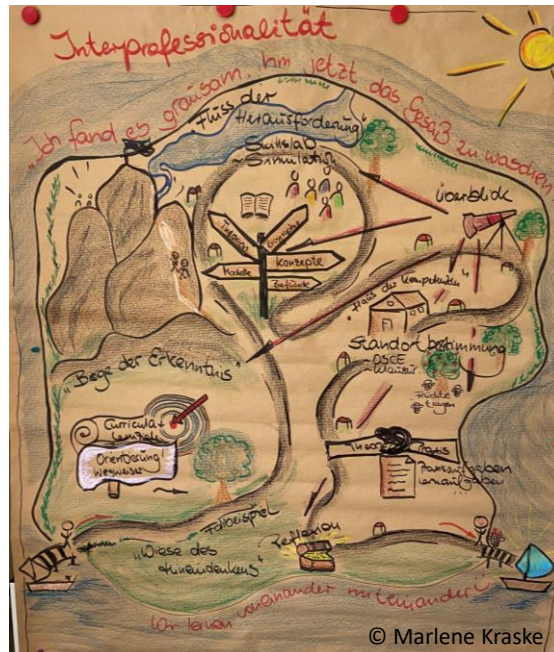 Interprofessionalität
„Ich fand es grausam, ihm jetzt das Gesäß zu waschen
„Fluss der
Herausforderung"
Skillslab
Simulation
Überblick
Theorien
Konzepte
Modelle
„Haus der Kompetenzen"
Standortbestimmung
- OSCE
- Klausur
Früchte
tragen
„Berge der Erkenntnis"
Curricula +
Lernziele
Orientierung
Wegweiser
Theorie
Praxis
Praxisaufgaben
Lernaufgaben
Fallbeispiel
Reflexion
„Wiese des
Wir lernen voneinander miteinander
© Marlene Kraske